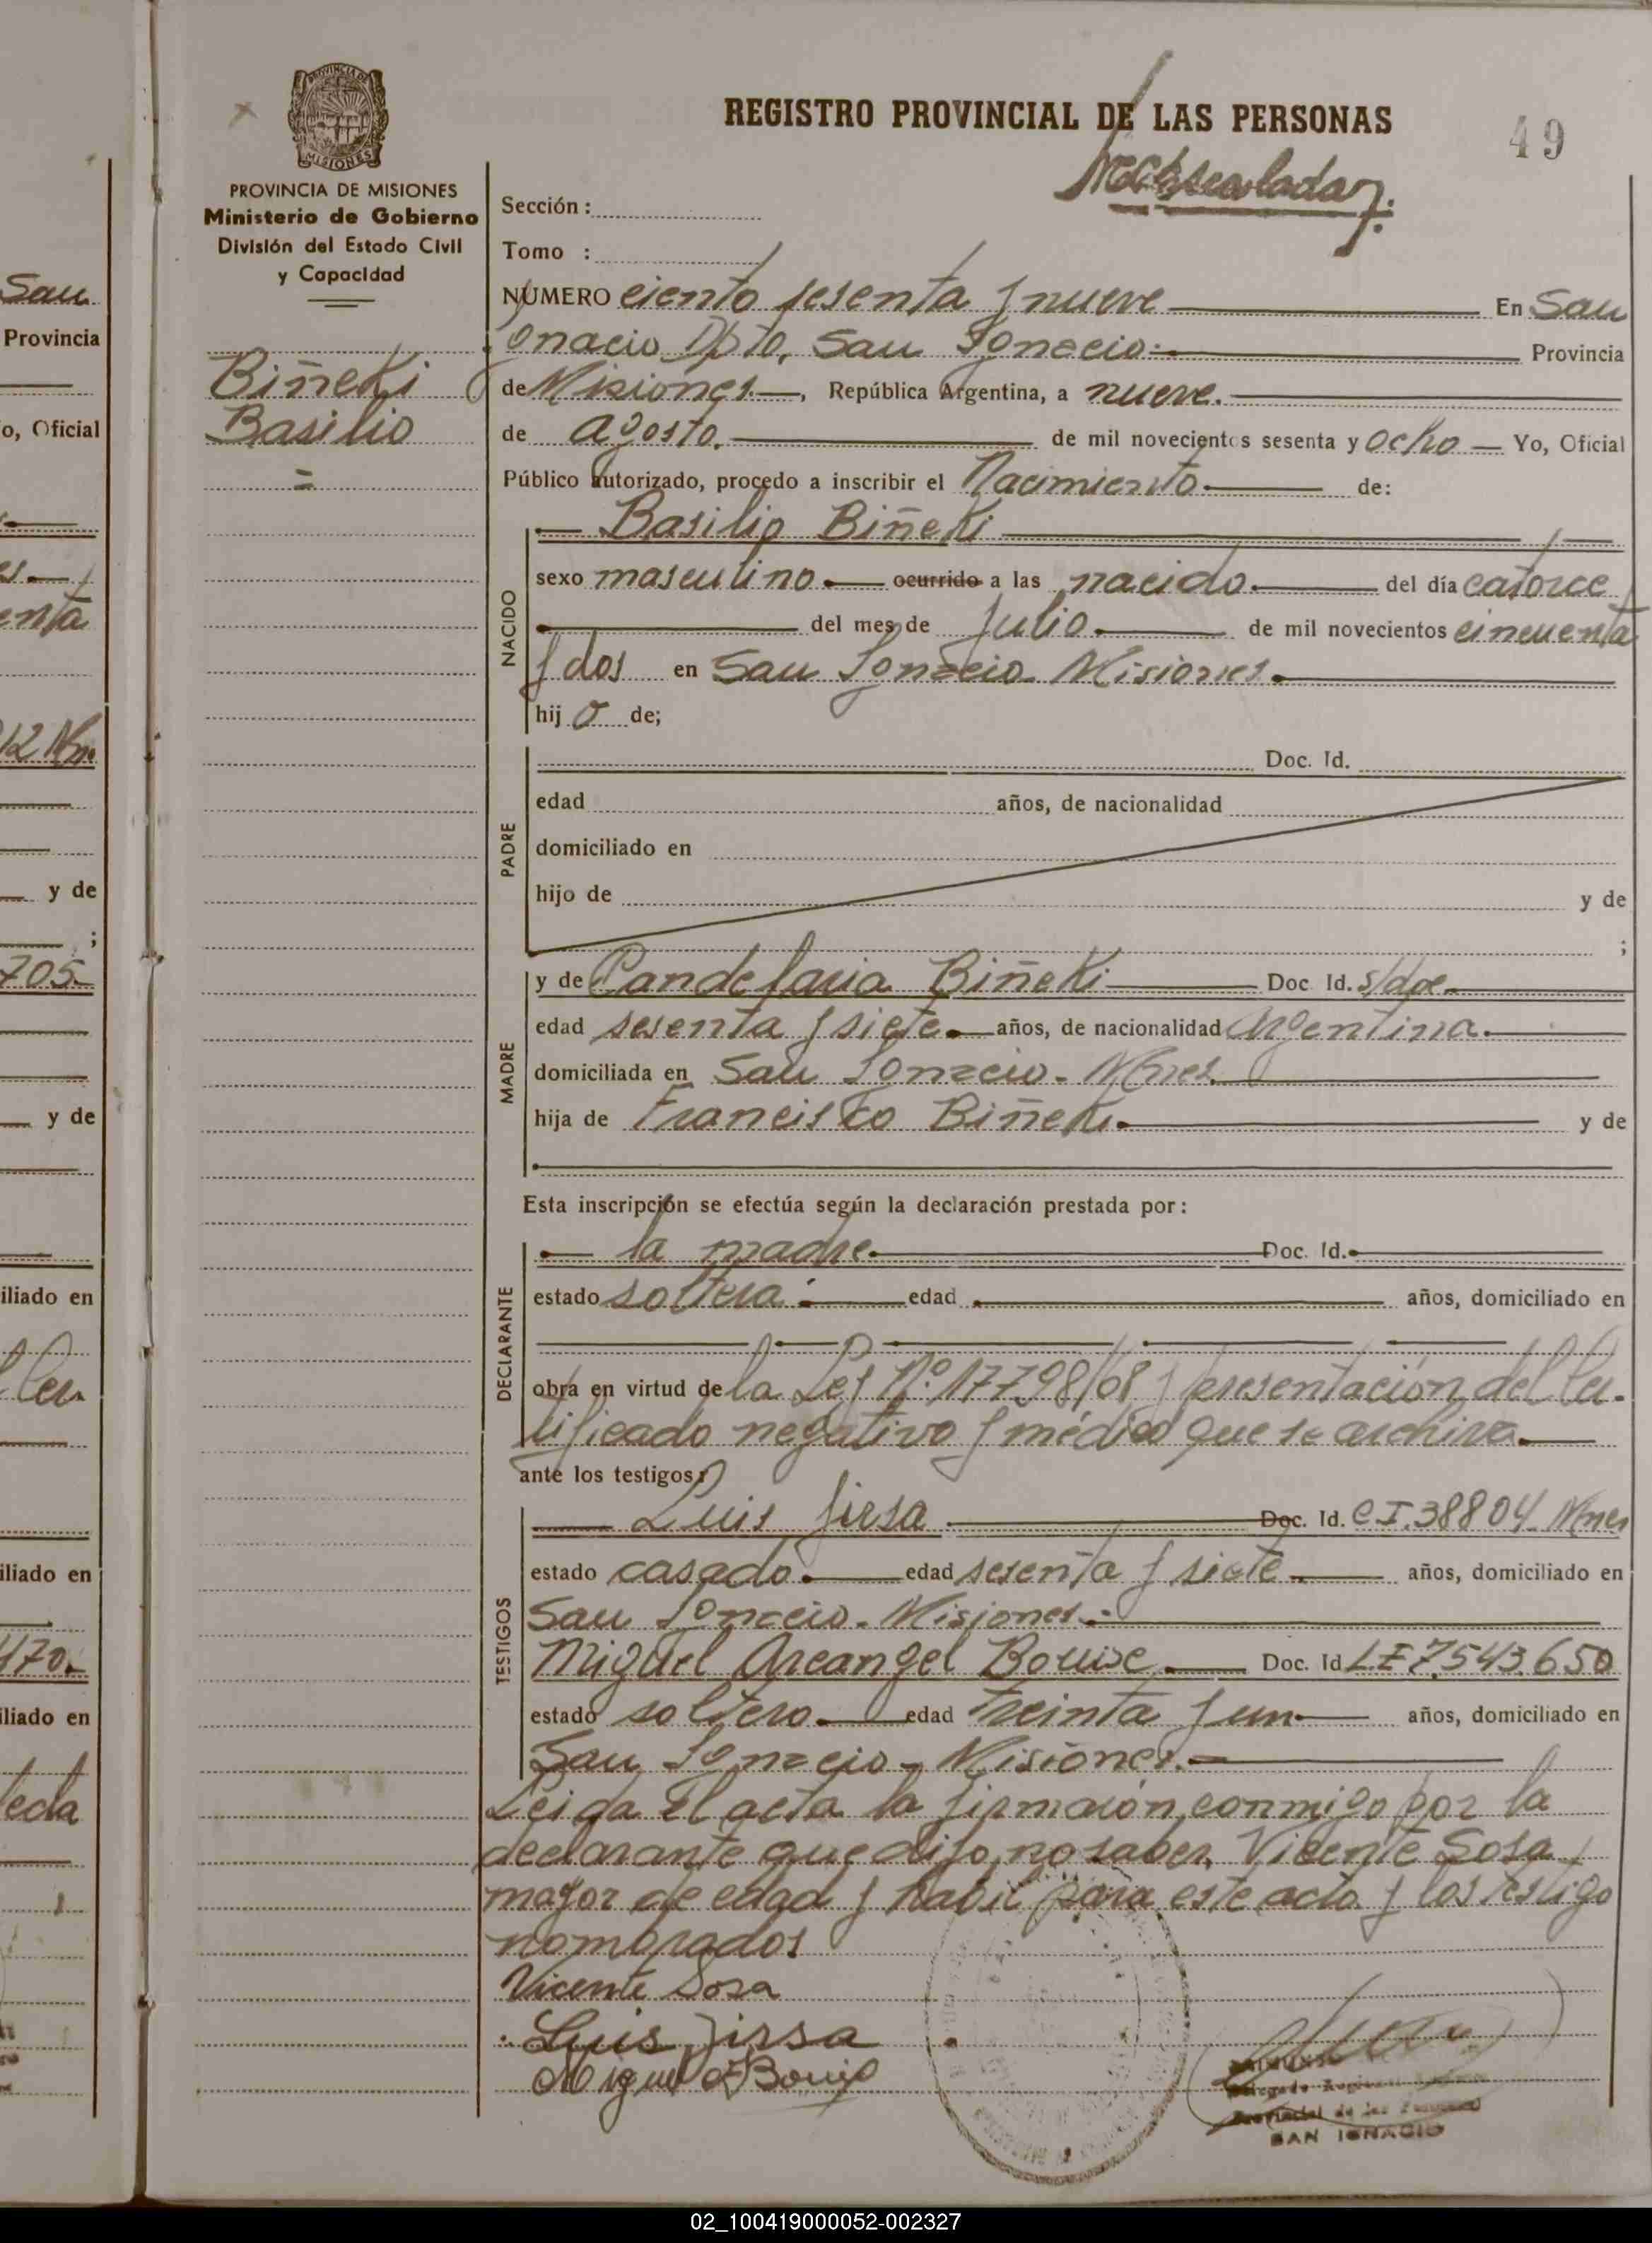 REGISTRO PROVINCIAL DE LAS PERSONAS
49
PROVINCIA DE
MISIONES
PROVINCIA DE MISIONES
Ministerio de Gobierno
División del Estado Civil
y Capacidad
Biñeki
Basilio
Sección:
Tomo :
NÚMERO ciento sesenta y nueve En San
Ignacio Dpto. San Ignacio. Provincia
de Misiones, República Argentina, a nueve.
de agosto. de mil novecientos sesenta y ocho Yo, Oficial
Público autorizado, procedo a inscribir el Nacimiento de:
Basilio Biñeki
NACIDO
sexo masculino ocurrido a las nacido del día catorce
del mes de Julio de mil novecientos cincuenta
y dos en San Ignacio Misiones.
hijo de;
PADRE
Doc. Id.
edad años, de nacionalidad
domiciliado en
hijo de y de
;
MADRE
y de Candelaria Biñeki Doc Id. s/doc.
edad sesenta y siete. años, de nacionalidad Argentina.
domiciliada en San Ignacio. Mnes.
hija de Francisco Biñeki y de
Esta inscripción se efectúa según la declaración prestada por:
DECLARANTE
la madre. Doc. Id.
estado soltera. edad años, domiciliado en
obra en virtud de la Ley Nº 17798/68 y presentación del Cer-
tificado negativo y médico que se archiva.
ante los testigos:
TESTIGOS
Luis Jirsa Doc. Id. C.I. 38804 Mnes
estado casado. edad sesenta y siete años, domiciliado en
San Ignacio. Misiones.
Miguel Arcangel Bouise Doc. Id L.E 7.543.650
estado soltero. edad treinta y un años, domiciliado en
San Ignacio - Misiones.
Leida el acta la firmaron conmigo por la
declarante que dijo no saber, Vicente Sosa
mayor de edad y habil para este acto y los testigo
nombrados
Vicente Sosa
Luis Jirsa
SAN IGNACIO
San
Provincia
o, Oficial
enta
12 Mne
y de
;
705
y de
iliado en
iliado en
470
iliado en
02_100419000052-002327